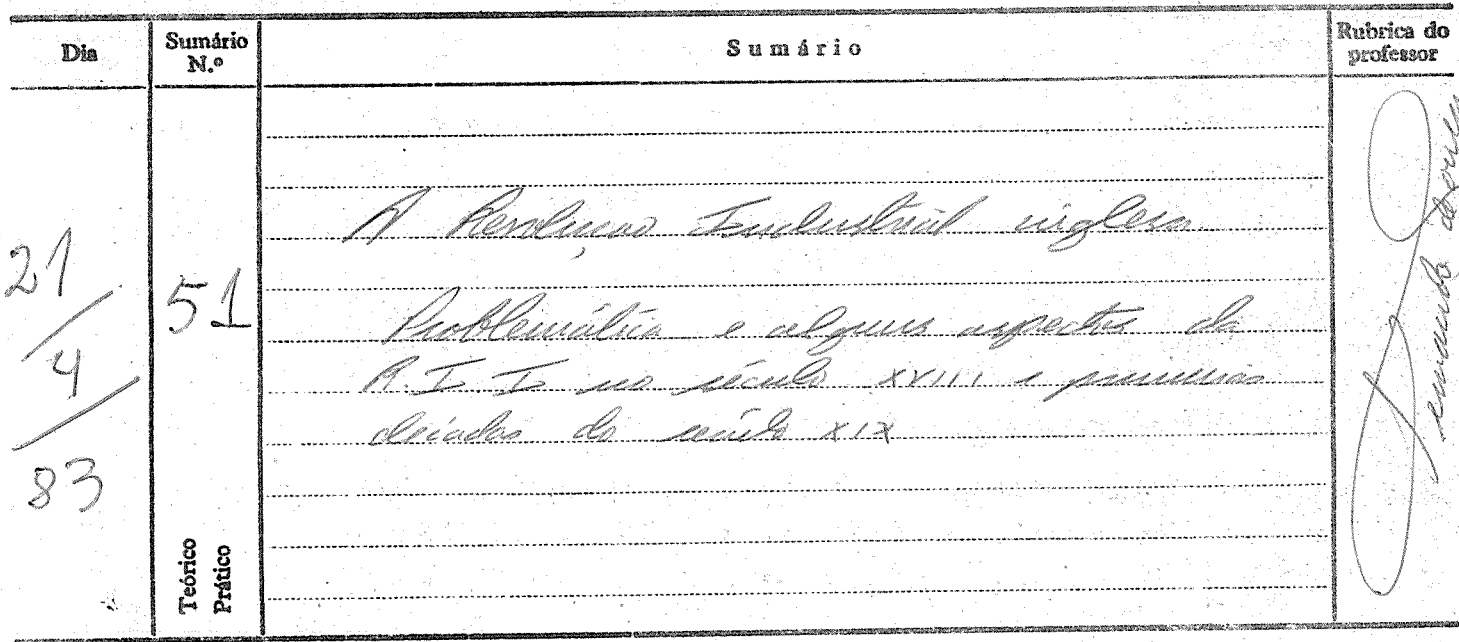 Dia
Sumário N.º
Sumário
Rubrica do professor
21/4/83
51
A Revolução Industrial inglesa.
Problemática e alguns aspectos da
R. I. I. no século XVIII e primeiras
décadas do século XIX
Teórico
Prático